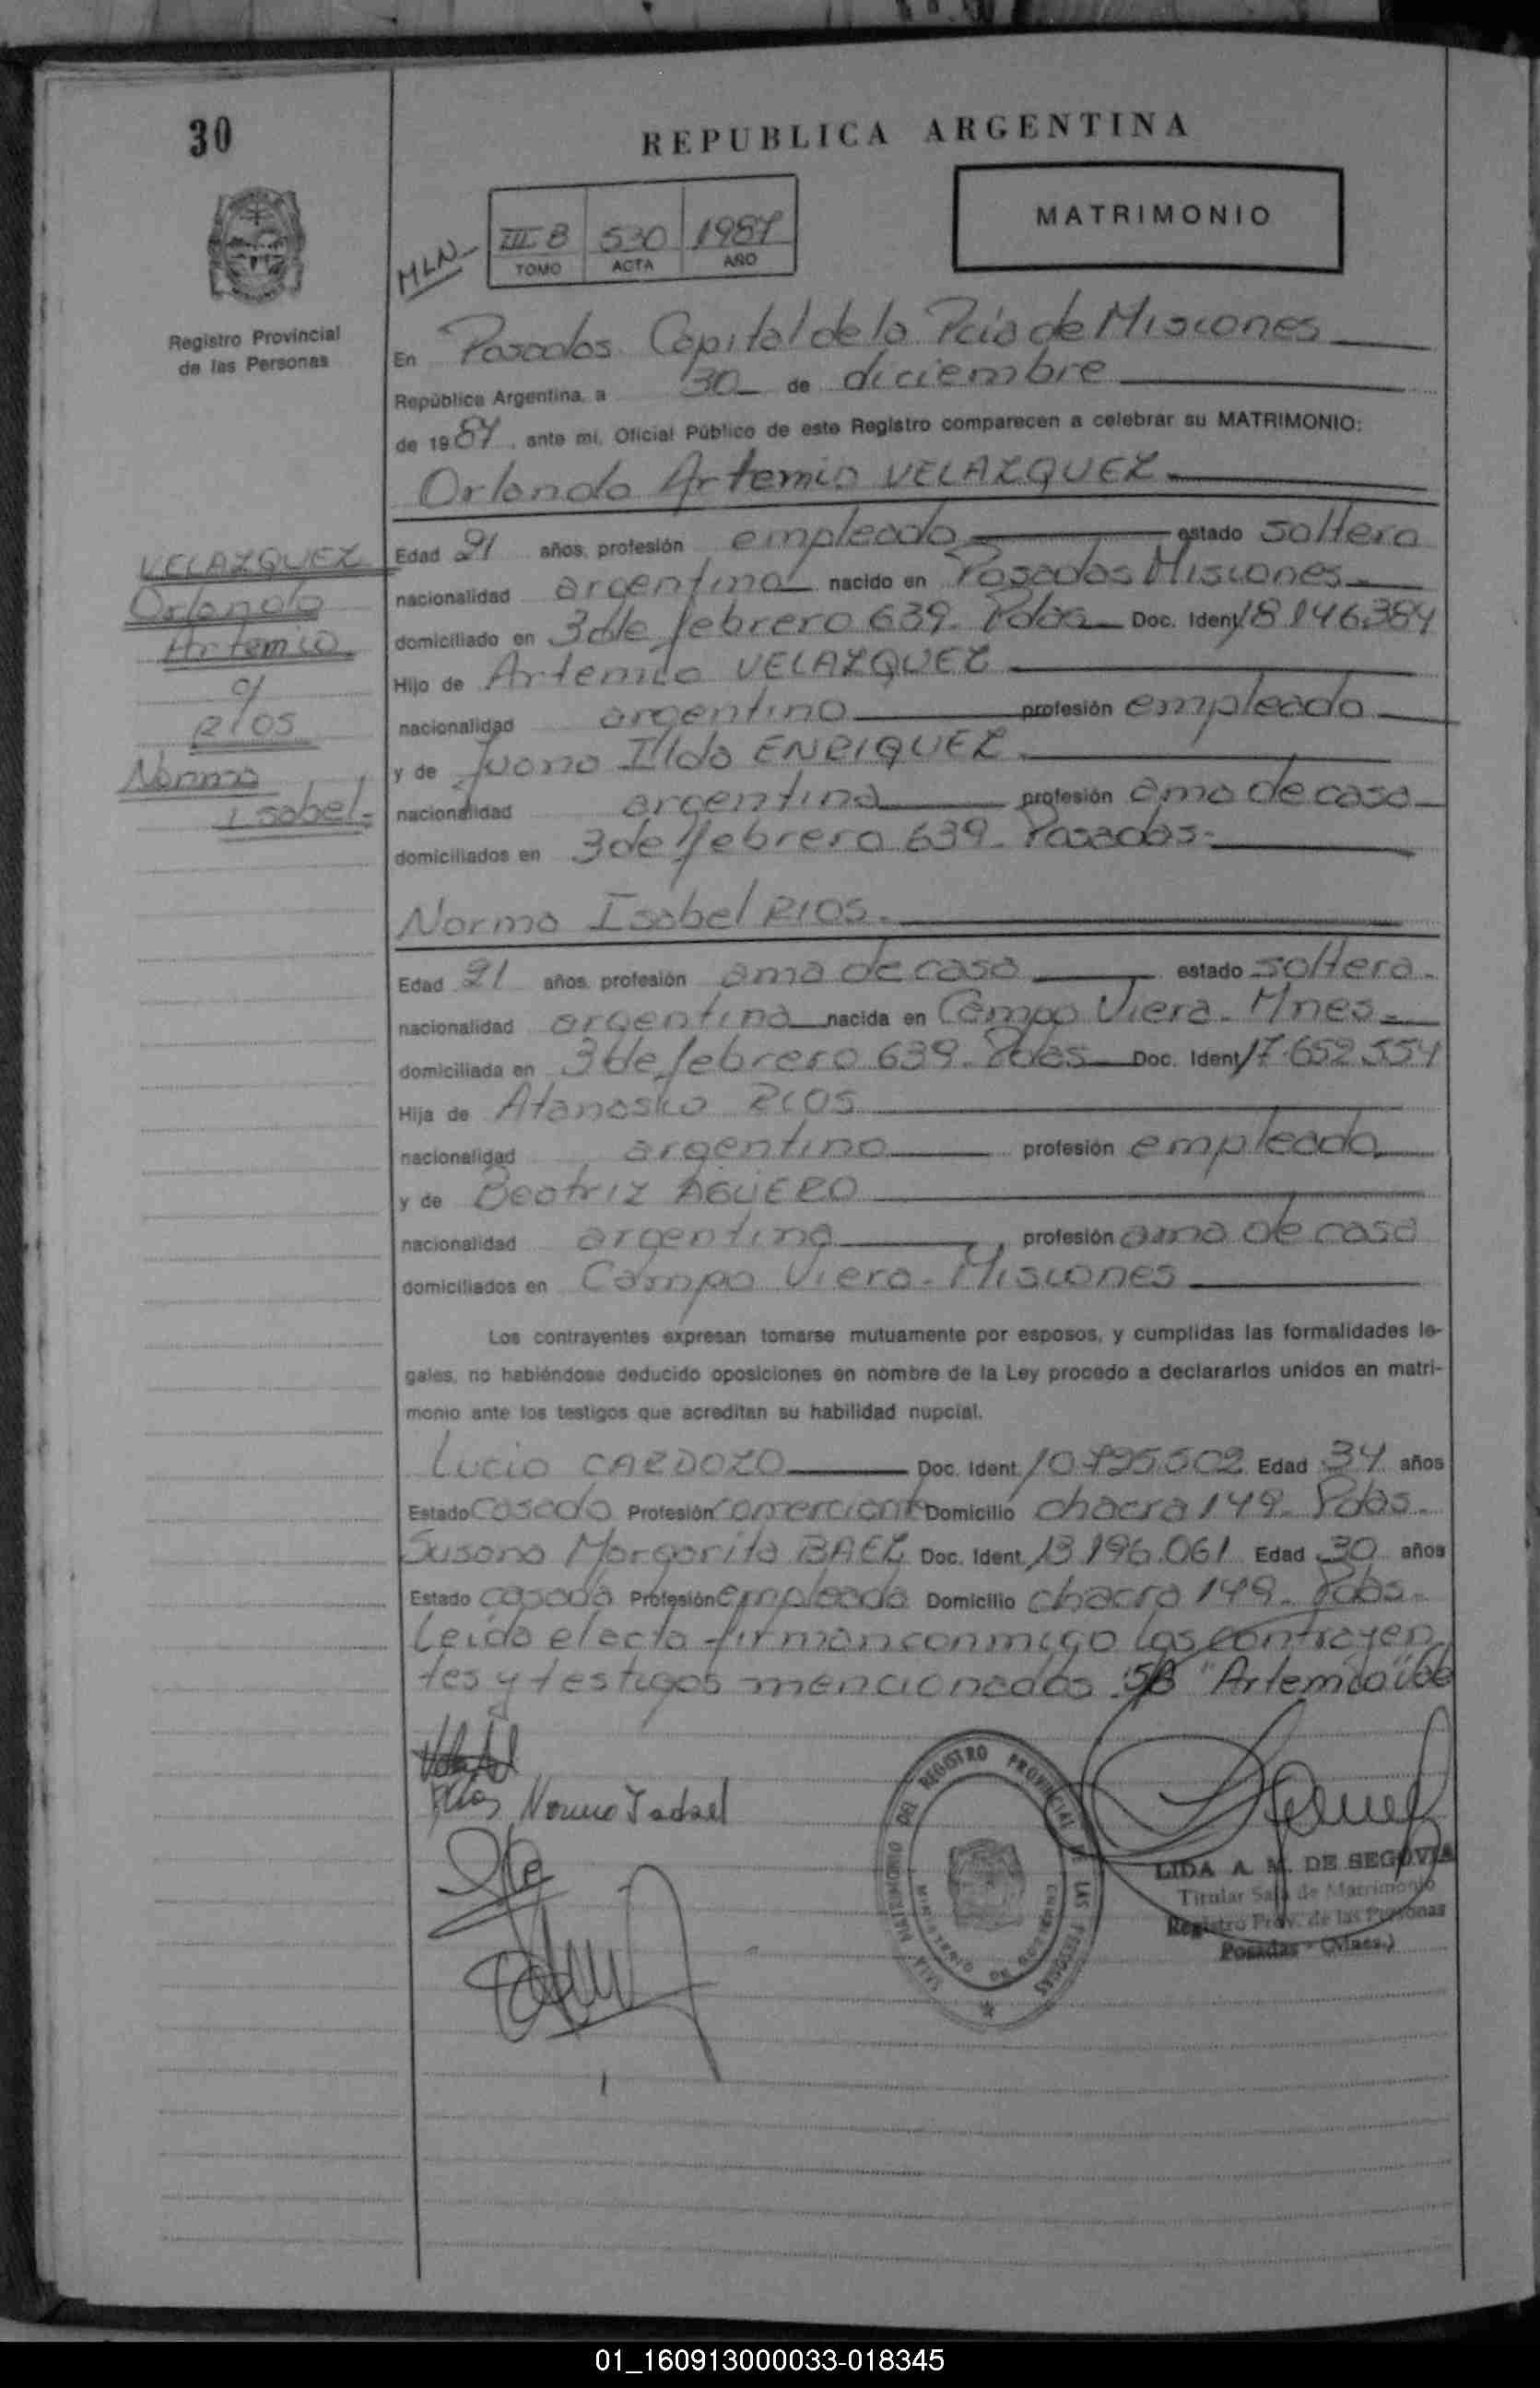 30
REPUBLICA ARGENTINA
MATRIMONIO
MLN
III B 530 1987
TOMO ACTA AÑO
Registro Provincial
de las Personas
En Posadas. Capital de la Pcia de Misiones
República Argentina, a 30 de diciembre
de 1987, ante mí, Oficial Público de este Registro comparecen a celebrar su MATRIMONIO:
Orlando Artemio VELAZQUEZ
VELAZQUEZ
Orlando
Artemio
c/
RIOS
Norma
Isabel.-
Edad 21 años, profesión empleado estado soltero
nacionalidad argentino nacido en Posadas Misiones.
domiciliado en 3 de febrero 639. Pdas Doc. Ident. 18.146.384
Hijo de Artemio VELAZQUEZ
nacionalidad argentino profesión empleado
y de Juana Ilda ENRIQUEZ
nacionalidad argentina profesión ama de casa
domiciliados en 3 de febrero 639. Posadas.
Norma Isabel RIOS.
Edad 21 años, profesión ama de casa estado soltera.
nacionalidad argentina nacida en Campo Viera. Mnes.
domiciliada en 3 de febrero 639. Pdas Doc. Ident. 17.652.554
Hija de RIOS
nacionalidad argentino profesión empleado
y de Beatriz AGUERO
nacionalidad argentina profesión ama de casa
domiciliados en Campo Viera. Misiones
Los contrayentes expresan tomarse mutuamente por esposos, y cumplidas las formalidades le-
gales, no habiéndose deducido oposiciones en nombre de la Ley procedo a declararlos unidos en matri-
monio ante los testigos que acreditan su habilidad nupcial.
Lucio CARDOZO Doc. Ident. 10.795.502 Edad 34 años
Estado casado Profesión comerciante Domicilio chacra 149. Pdas.
Susana Margarita BAEZ Doc. Ident. 13.196.061 Edad 30 años
Estado casada Profesión empleada Domicilio chacra 149. Pdas.
Leida el acta firman conmigo los contrayen
tes y testigos mencionados. S/B "Artemio" Vale
Rios Norma Isabel
SALA MATRIMONIO DEL REGISTRO PROVINCIAL DE LAS PERSONAS
MINISTERIO DE GOBIERNO
LIDA A. M. DE SEGOVIA
Titular Sala de Matrimonio
Registro Prov. de las Personas
Posadas - (Mnes.)
01_160913000033-018345